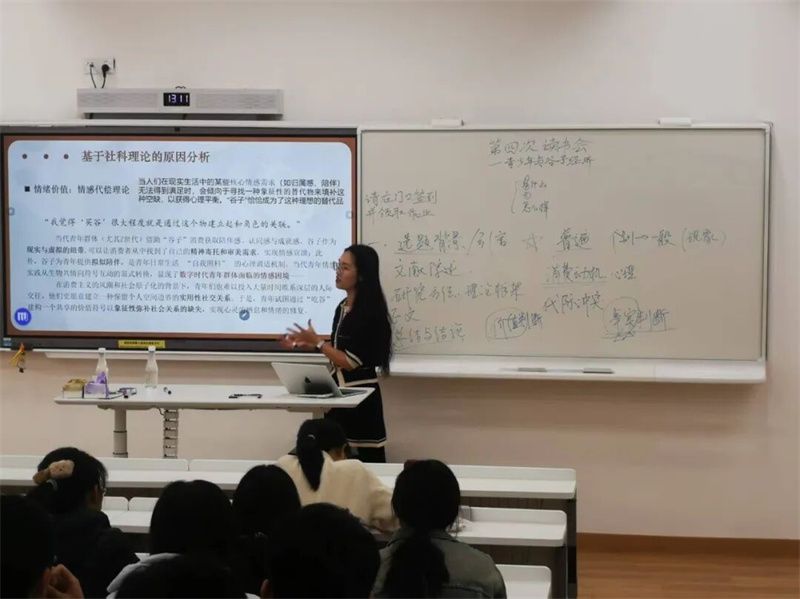 13:11
基于社科理论的原因分析
■ 情绪价值：情感代偿理论
当人们在现实生活中的某些核心情感需求（如归属感、陪伴）
无法得到满足时，会倾向于寻找一种象征性的替代物来填补这
种空缺，以获得心理平衡，“谷子”恰恰成为了这种理想的替代品
“我觉得‘买谷’很大程度就是通过这个物建立起和角色的关联。”
当代青年群体（尤其Z世代）借助“谷子”消费获取陪伴感、认同感与成就感，谷子作为
现实与虚拟的纽带，可以让消费者从中找到了自己的精神寄托和审美需求，实现情感宣泄；此
外，谷子为青年提供模拟陪伴，是青年日常生活“自我照料”的心理调适机制。当代青年情
实践从生物共情向符号互动的范式转换，显现了数字时代青年群体面临的情感困境——
在消费主义的风潮和社会原子化的背景下，青年们也难以投入大量时间维系深层的人际
交往，他们更愿意建立一种保留个人空间边界的实用性社交关系。于是，青年试图通过“吃谷”
建构一个共享的价值符号以象征弥补社会关系的缺失，实现心灵的慰藉和情绪的修复。
第四次读书会
是什么
为
怎么样
请在门口签到
并领取
一、选题背景
普遍
一般（现象）
文献综述
消费动机 心理
研究方法、理论框架
代际冲突
正文
总结与结论
价值判断
事实判断